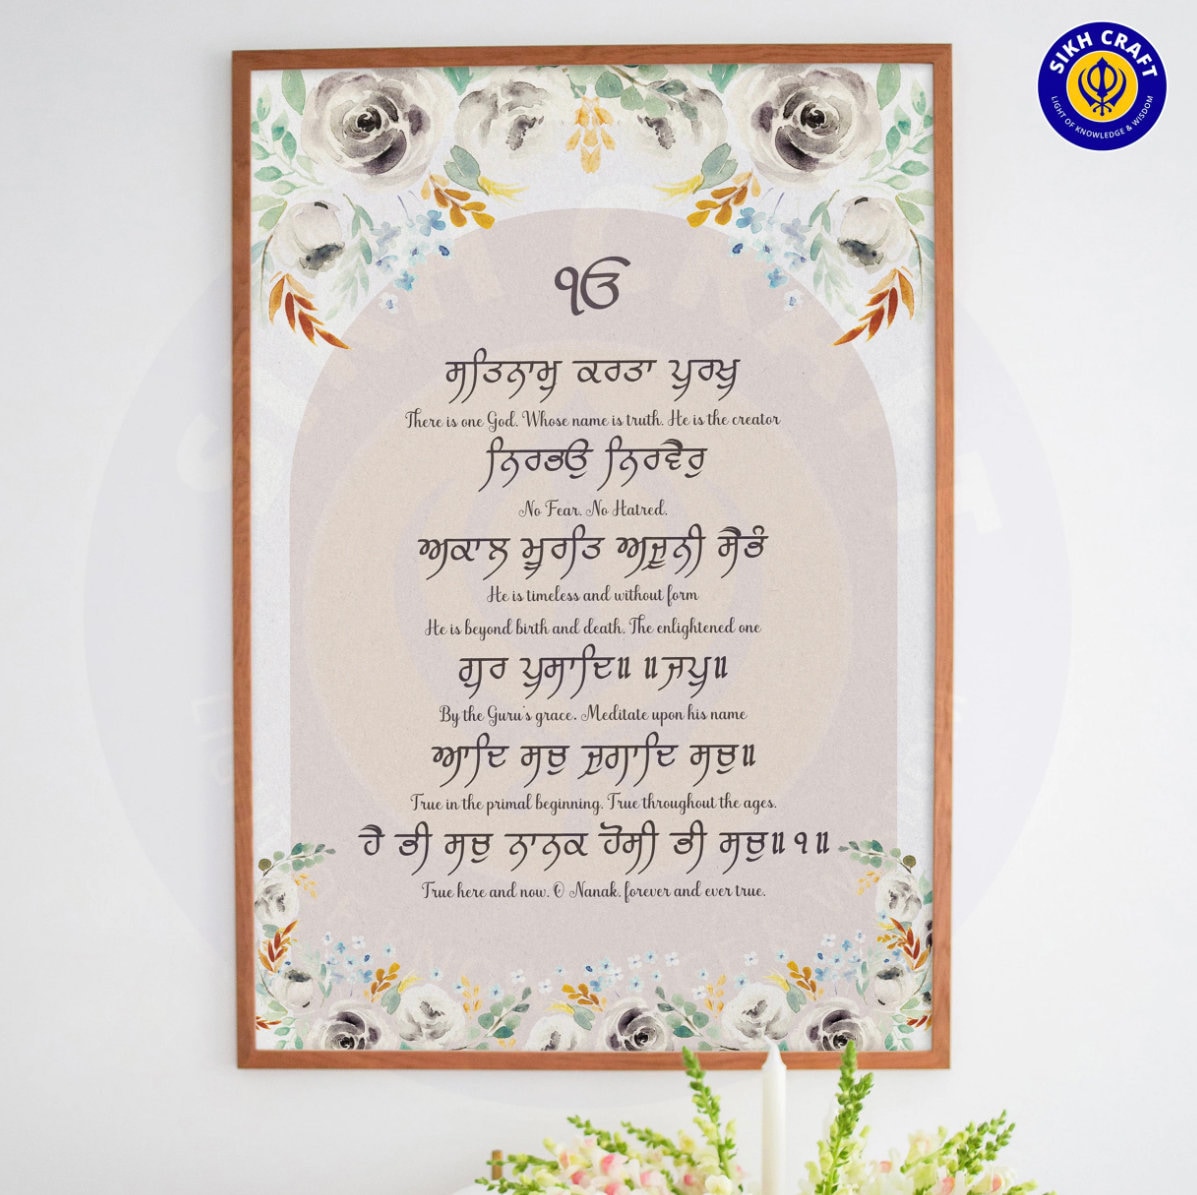 SIKH CRAFT
LIGHT OF KNOWLEDGE & WISDOM
ੴ
ਸਤਿਨਾਮੁ ਕਰਤਾ ਪੁਰਖੁ
There is one God. Whose name is truth. He is the creator
ਨਿਰਭਉ ਨਿਰਵੈਰੁ
No Fear. No Hatred.
ਅਕਾਲ ਮੂਰਤਿ ਅਜੂਨੀ ਸੈਭੰ
He is timeless and without form
He is beyond birth and death. The enlightened one
ਗੁਰ ਪ੍ਰਸਾਦਿ॥ ॥ਜਪੁ॥
By the Guru's grace. Meditate upon his name
ਆਦਿ ਸਚੁ ਜੁਗਾਦਿ ਸਚੁ॥
True in the primal beginning. True throughout the ages.
ਹੈ ਭੀ ਸਚੁ ਨਾਨਕ ਹੋਸੀ ਭੀ ਸਚੁ॥੧॥
True here and now. O Nanak. forever and ever true.